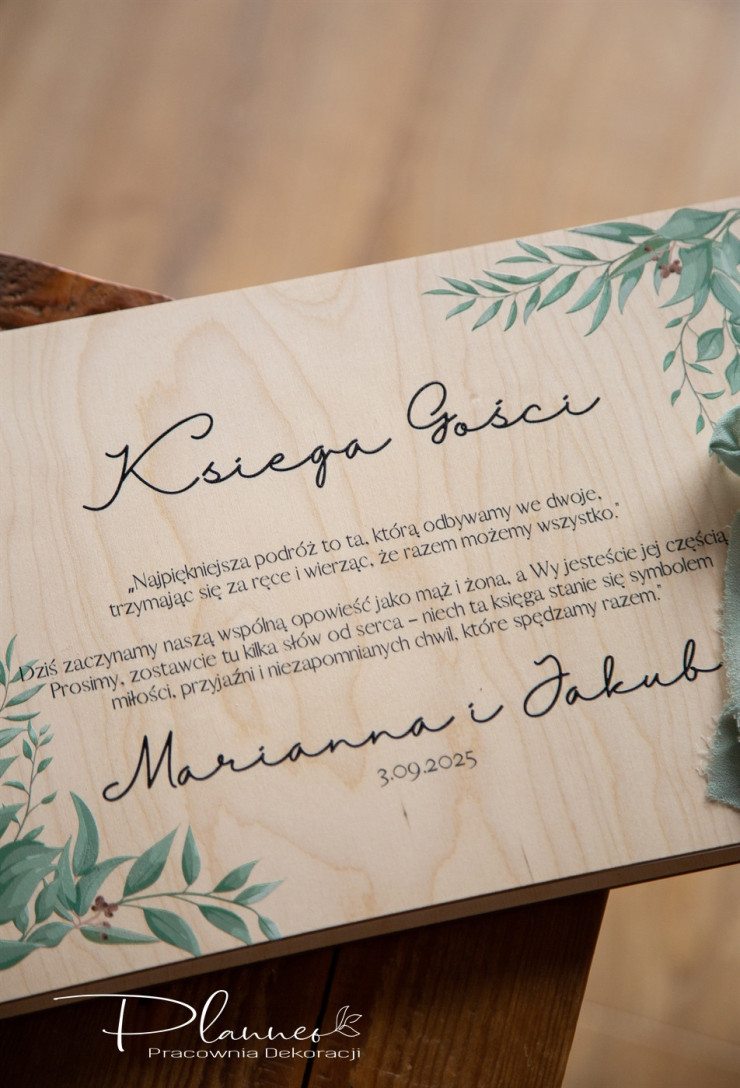 Księga Gości
„Najpiękniejsza podróż to ta, którą odbywamy we dwoje,
trzymając się za ręce i wierząc, że razem możemy wszystko."
Dziś zaczynamy naszą wspólną opowieść jako mąż i żona, a Wy jesteście jej częścią
Prosimy, zostawcie tu kilka słów od serca – niech ta księga stanie się symbolem
miłości, przyjaźni i niezapomnianych chwil, które spędzamy razem."
Marianna i Jakub
3.09.2025
Planneo
Pracownia Dekoracji